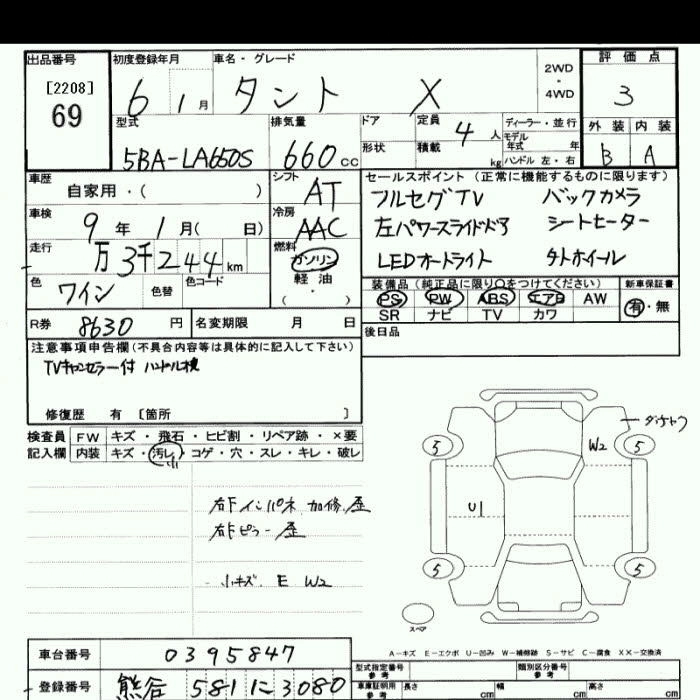 出品番号 初度登録年月 車名・グレード 2WD ・ 4WD 評価点
[2208] 69 6 1月 タント X 3
型式 排気量 ドア 定員 4人 ディーラー・並行 外装 内装
5BA-LA650S 660cc 形状 積載 kg モデル年式 年 ハンドル 左・右 B A
車歴 シフト セールスポイント (正常に機能するものに限ります)
自家用・( ) AT フルセグTV バックカメラ
車検 冷房 左パワースライドドア シートヒーター
9年 1月( 日) AAC LEDオートライト
走行 万3千244km 燃料 ガソリン
色 色替 色コード 軽油 装備品 (純正品に限り○をつけてください) 新車保証書
ワイン ( ・ ) PS PW ABS エアB AW 有・無
SR ナビ TV カワ
R券 8630円 名変期限 月 日 後日品
注意事項申告欄(不具合内容等は具体的に記入して下さい)
TVキャンセラー付
修復歴 有 〔箇所 〕
検査員 FW キズ・飛石・ヒビ割・リペア跡・×要
記入欄 内装 キズ・汚レ・コゲ・穴・スレ・キレ・破レ
小
5 W2 5
右下インパネ 加修.歪
U1
小キズ E W2
5 5
スペア
A-キズ E-エクボ U-凹み W-補修跡 S-サビ C-腐食 XX-交換済
車台番号 0395847 型式指定番号 参考 類別区分番号 参考
登録番号 熊谷 581 に 3080 車庫証明用 参考 長さ cm 幅 cm 高さ cm